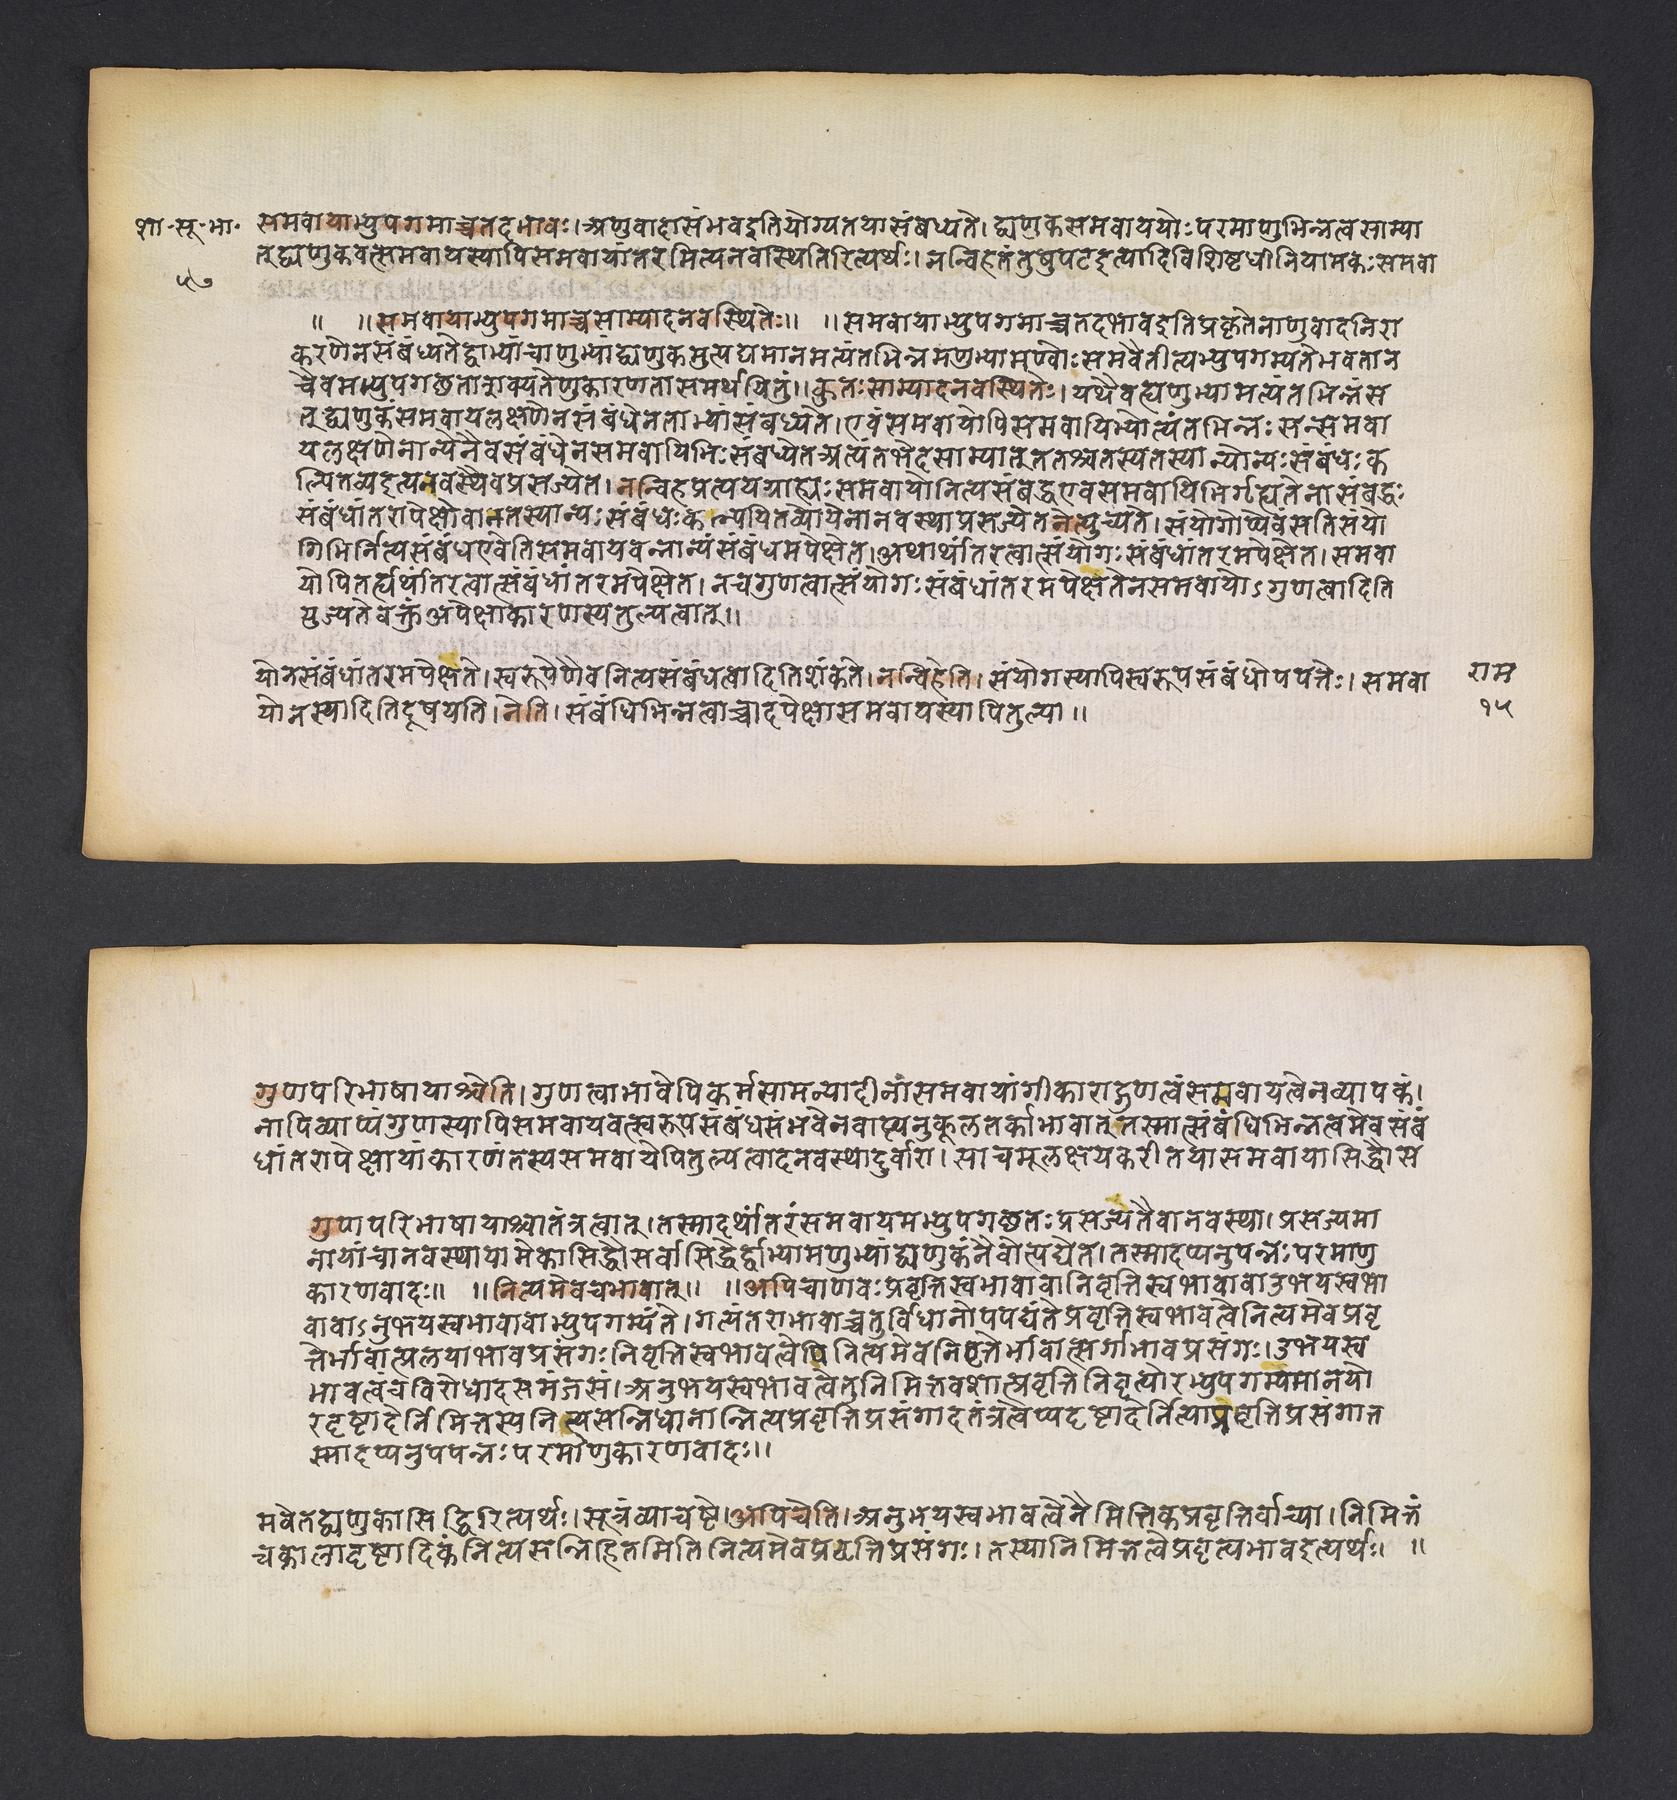 शा॰सू॰भा॰
५७
समवायाभ्युपगमाच्चतदभावः।अणुवादासंभवइतियोग्यतयासंबध्यते।द्व्यणुकसमवाययोःपरमाणुभिन्नत्वसाम्या
त्द्व्यणुकवत्समवायस्यापिसमवायांतरमित्यनवस्थितिरित्यर्थः।नन्विहतंतुषुपटइत्यादिविशिष्टधीनियामकःसमवा
॥ ॥समवायाभ्युपगमाच्चसाम्यादनवस्थितेः॥ ॥समवायाभ्युपगमाच्चतदभावइतिप्रकृतेनाणुवादनिरा
करणेनसंबंध्यतेद्वाभ्यांचाणुभ्यांद्व्यणुकमुत्पद्यमानमत्यंतभिन्नमणुभ्यामण्वोःसमवैतीत्यभ्युपगम्यतेभवतान
चैवमभ्युपगछताशक्यतेणुकारणतासमर्थयितुं॥कुतःसाम्यादनवस्थितेः।यथैवह्यणुभ्यामत्यंतभिन्नंस
त्द्व्यणुकंसमवायलक्षणेनसंबंधेनताभ्यांसंबध्यते।एवंसमवायोपिसमवायिभ्योत्यंतभिन्नःसन्समवा
यलक्षणेनान्येनैवसंबंधेनसमवायिभिःसंबध्येतअत्यंतभेदसाम्यात्ततश्चतस्यतस्यान्योन्यःसंबंधःक
ल्पितव्यइत्यनवस्थैवप्रसज्येत।नन्विहप्रत्ययग्राह्यःसमवायोनित्यसंबद्धएवसमवायिभिर्गृह्यतेनासंबद्धः
संबंधांतरापेक्षोवानतस्यान्यःसंबंधःकल्पयितव्योयेनानवस्थाप्रसज्येतनेत्युच्यते।संयोगोप्येवंसतिसंयो
गिभिर्नित्यसंबंधएवेतिसमवायवन्नान्यंसंबंधमपेक्षेत।अथार्थांतरत्वात्संयोगःसंबंधांतरमपेक्षेत।समवा
योपितर्ह्यर्थांतरत्वात्संबंधांतरमपेक्षेत।नचगुणत्वात्संयोगःसंबंधांतरमपेक्षतेनसमवायोऽगुणत्वादिति
युज्यतेवक्तुंअपेक्षाकारणस्यतुल्यत्वात्॥
योनसंबंधांतरमपेक्षते।स्वरूपेणैवनित्यसंबंधत्वादितिशंकते।नन्विहेति।संयोगस्यापिस्वरूपसंबंधोपपत्तेः।समवा
योनस्यादितिदूषयति।नेति।संबंधिभिन्नत्वाच्चादपेक्षासमवायस्यापितुल्या॥
राम
१५
गुणपरिभाषायाश्चेति।गुणत्वाभावेपिकर्मसामन्यादीनांसमवायांगीकाराद्गुणत्वंसमवायत्वेनव्यापकं।
नापिव्याप्यंगुणस्यापिसमवायवत्स्वरूपसंबंधसंभवेनवाप्त्यनुकूलतर्काभावात्तस्मात्संबंधिभिन्नत्वमेवसंबं
धांतरापेक्षायांकारणंतस्यसमवायेपितुल्यत्वादनवस्थादुर्वारा।साचमूलक्षयकरीतयासमवायासिद्धौस
गुणपरिभाषायाश्चातंत्रत्वात्।तस्मादर्थांतरंसमवायमभ्युपगछतःप्रसज्येतैवानवस्था।प्रसज्यमा
नायांचानवस्थायामेकासिद्धौसर्वासिद्धेर्द्वाभ्यामणुभ्यांद्व्यणुकंनैवोत्पद्येत।तस्मादप्यनुपन्नःपरमाणु
कारणवादः॥ ॥नित्यमेवचभावात्॥ ॥अपिचाणवःप्रवृत्तिस्वभावावानिवृत्तिस्वभावावाउभयस्वभा
वावाऽनुभयस्वभावावाभ्युपगम्यंते।गत्यंतराभावाच्चतुर्विधानोपपद्यंतेप्रवृत्तिस्वभावत्वेनित्यमेवप्रवृ
त्तेर्भावात्प्रलयाभावप्रसंगःनिवृत्तिस्वभावत्वेपिनित्यमेवनिवृत्तेर्भावात्सर्गाभावप्रसंगः।उभयस्व
भावत्वंचविरोधादसमंजसं।अनुभयस्वभावत्वेतुनिमित्तवशात्प्रवृत्तिनिवृत्योरभ्युपगम्यमानयो
रदृष्टादेर्निमित्तस्यनित्यसन्निधानान्नित्यप्रवृत्तिप्रसंगादतंत्रत्वेप्यदृष्टादेर्नित्याप्रवृत्तिप्रसंगात्त
स्मादप्यनुपपन्नःपरमाणुकारणवादः॥
मवेतद्व्यणुकासिद्धिरित्यर्थः।सूत्रंव्याचष्टे।अपिचेति।अनुभयस्वभावत्वेनैमित्तिकप्रवृत्तिर्वाच्या।निमित्तं
चकालादृष्टादिकंनित्यसन्निहितमितिनित्यमेवप्रवृत्तिप्रसंगः।तस्यानिमित्तत्वेप्रवृत्यभावइत्यर्थः॥ ॥